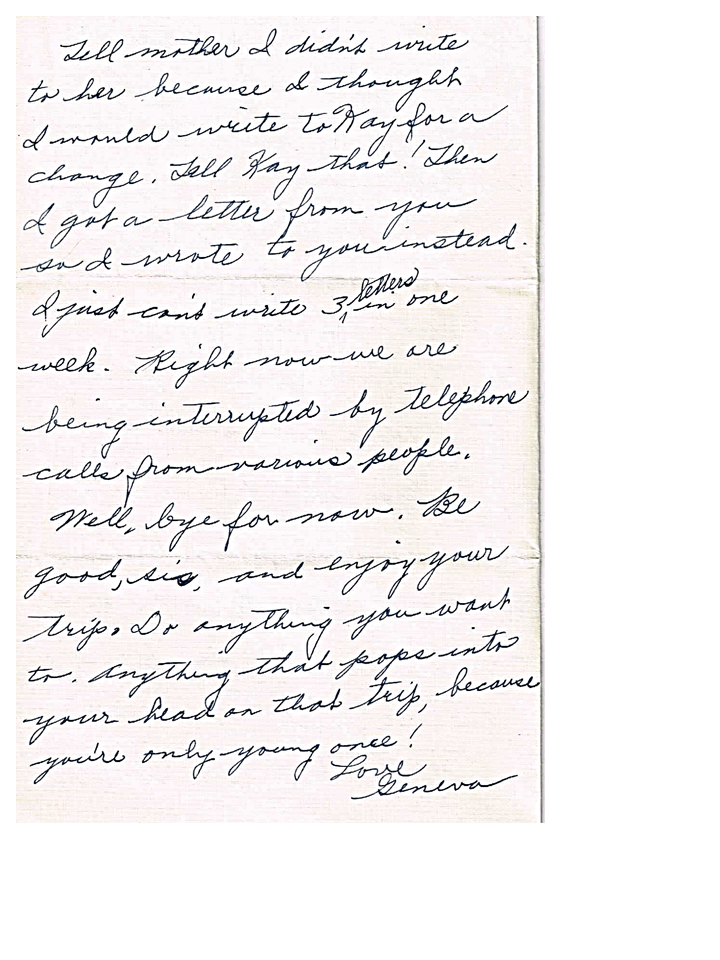 Tell mother I didn't write
to her because I thought
I would write to Kay for a
change. Tell Kay that! Then
I got a letter from you
so I wrote to you instead.
I just can't write 3 letters in one
week. Right now we are
being interrupted by telephone
calls from various people.
Well, bye for now. Be
good, sis, and enjoy your
trip. Do anything you want
to. Anything that pops into
your head on that trip, because
you're only young once!
Love
Geneva